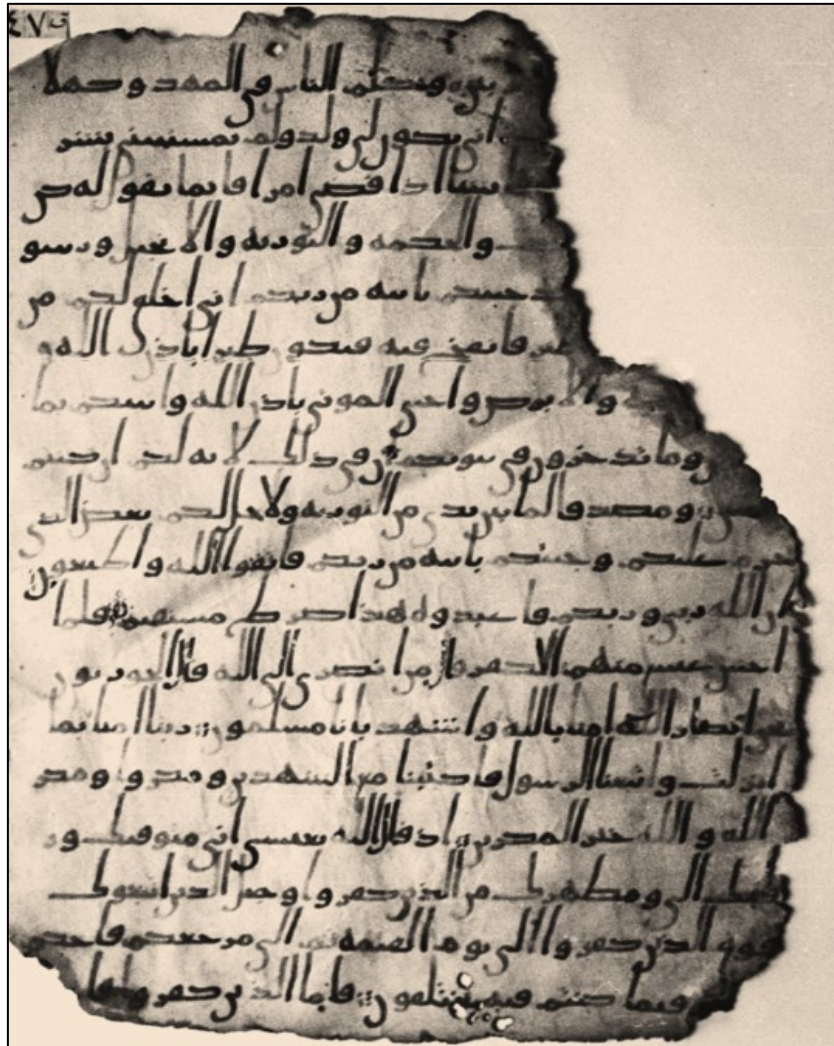 ق ٤٧
بين ويكلم الناس في المهد وكهلا
انى يكون لي ولد ولم يمسسني بشر
يشا اذا قضى امرا فانما يقول له كن
والحكمه والتوريه والانجيل ورسو
جيتكم بايه من ربكم اني اخلق لكم من
ير فانفخ فيه فيكون طيرا باذن الله و
ه والابرص واحي الموتى باذن الله وانبيكم بما
ن وما تدخرون في بيوتكم ان في ذلك لايه لكم ان كنتم
ومصدقا لما بين يدي من التوريه ولاحل لكم بعض الذي
حرم عليكم وجيتكم بايه من ربكم فاتقوا الله واطيعون
ان الله ربي وربكم فاعبدوه هذا صرط مستقيم فلما
احس عيسى منهم الكفر قال من انصري الى الله قال الحواريون
نحن انصار الله امنا بالله واشهد بانا مسلمون ربنا امنا بما
انزلت واتبعنا الرسول فاكتبنا مع الشهدين ومكروا ومكر
الله والله خير المكرين اذ قال الله يعيسى اني متوفيك ور
افعك الي ومطهرك من الذين كفروا وجعل الذين اتبعوك
فوق الذين كفروا الى يوم القيمه ثم الي مرجعكم فاحكم
فيما كنتم فيه تختلفون فاما الذين كفروا